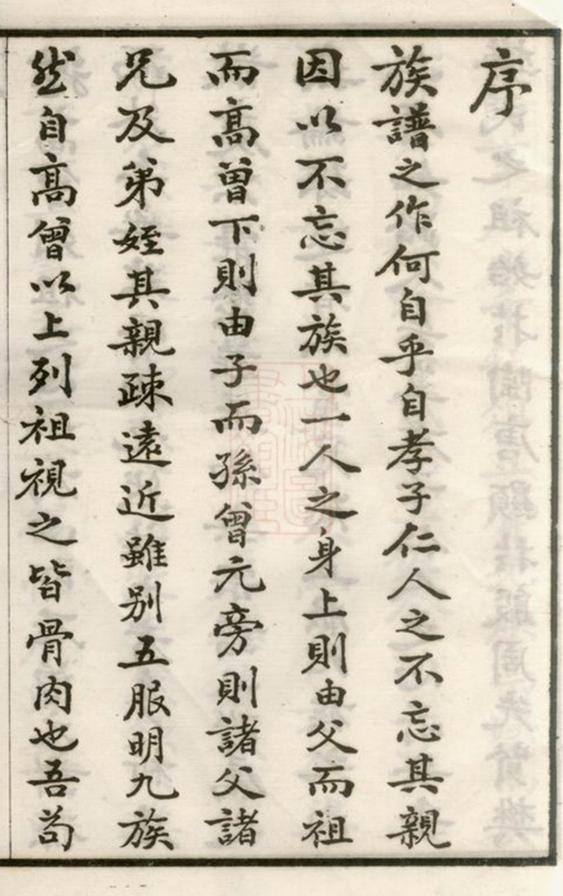 序
族譜之作何自乎自孝子仁人之不忘其親
因以不忘其族也一人之身上則由父而祖
而高曾下則由子而孫曾元旁則諸父諸
兄及弟姪其親疎遠近雖別五服明九族
然自高曾以上列祖視之皆骨肉也吾苟